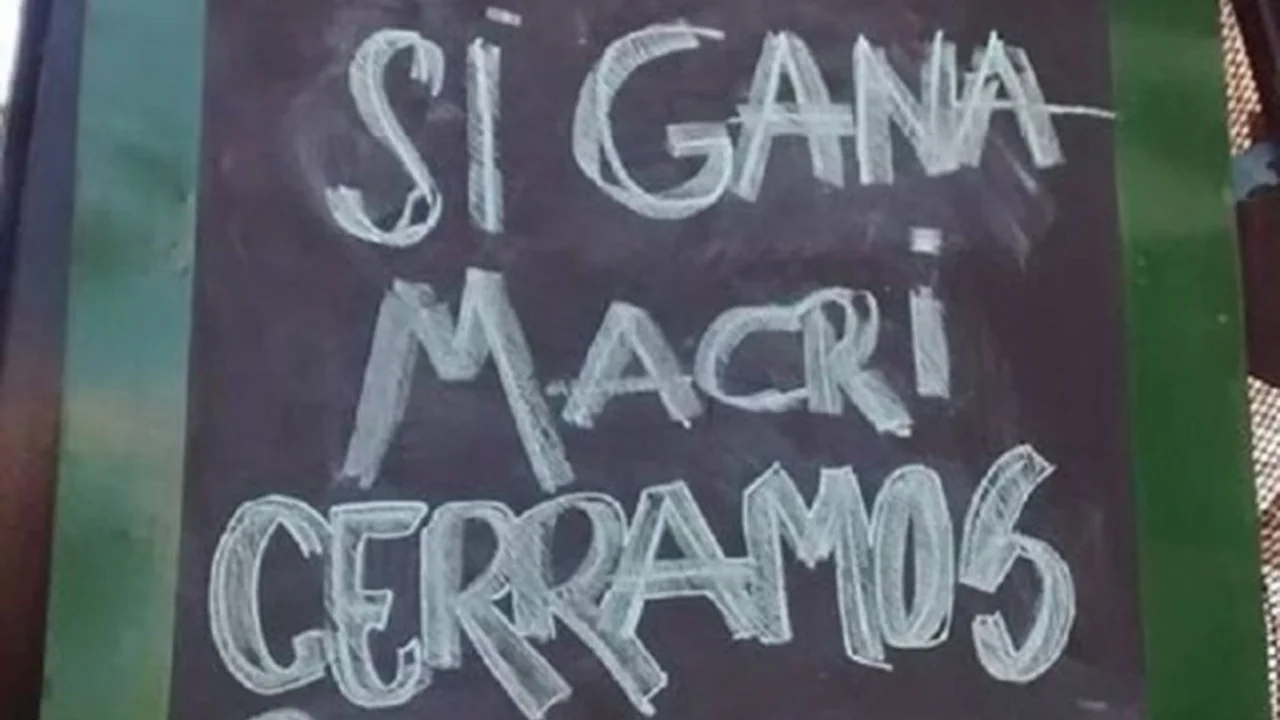 Si GANA
MACRi
CERRAMOS